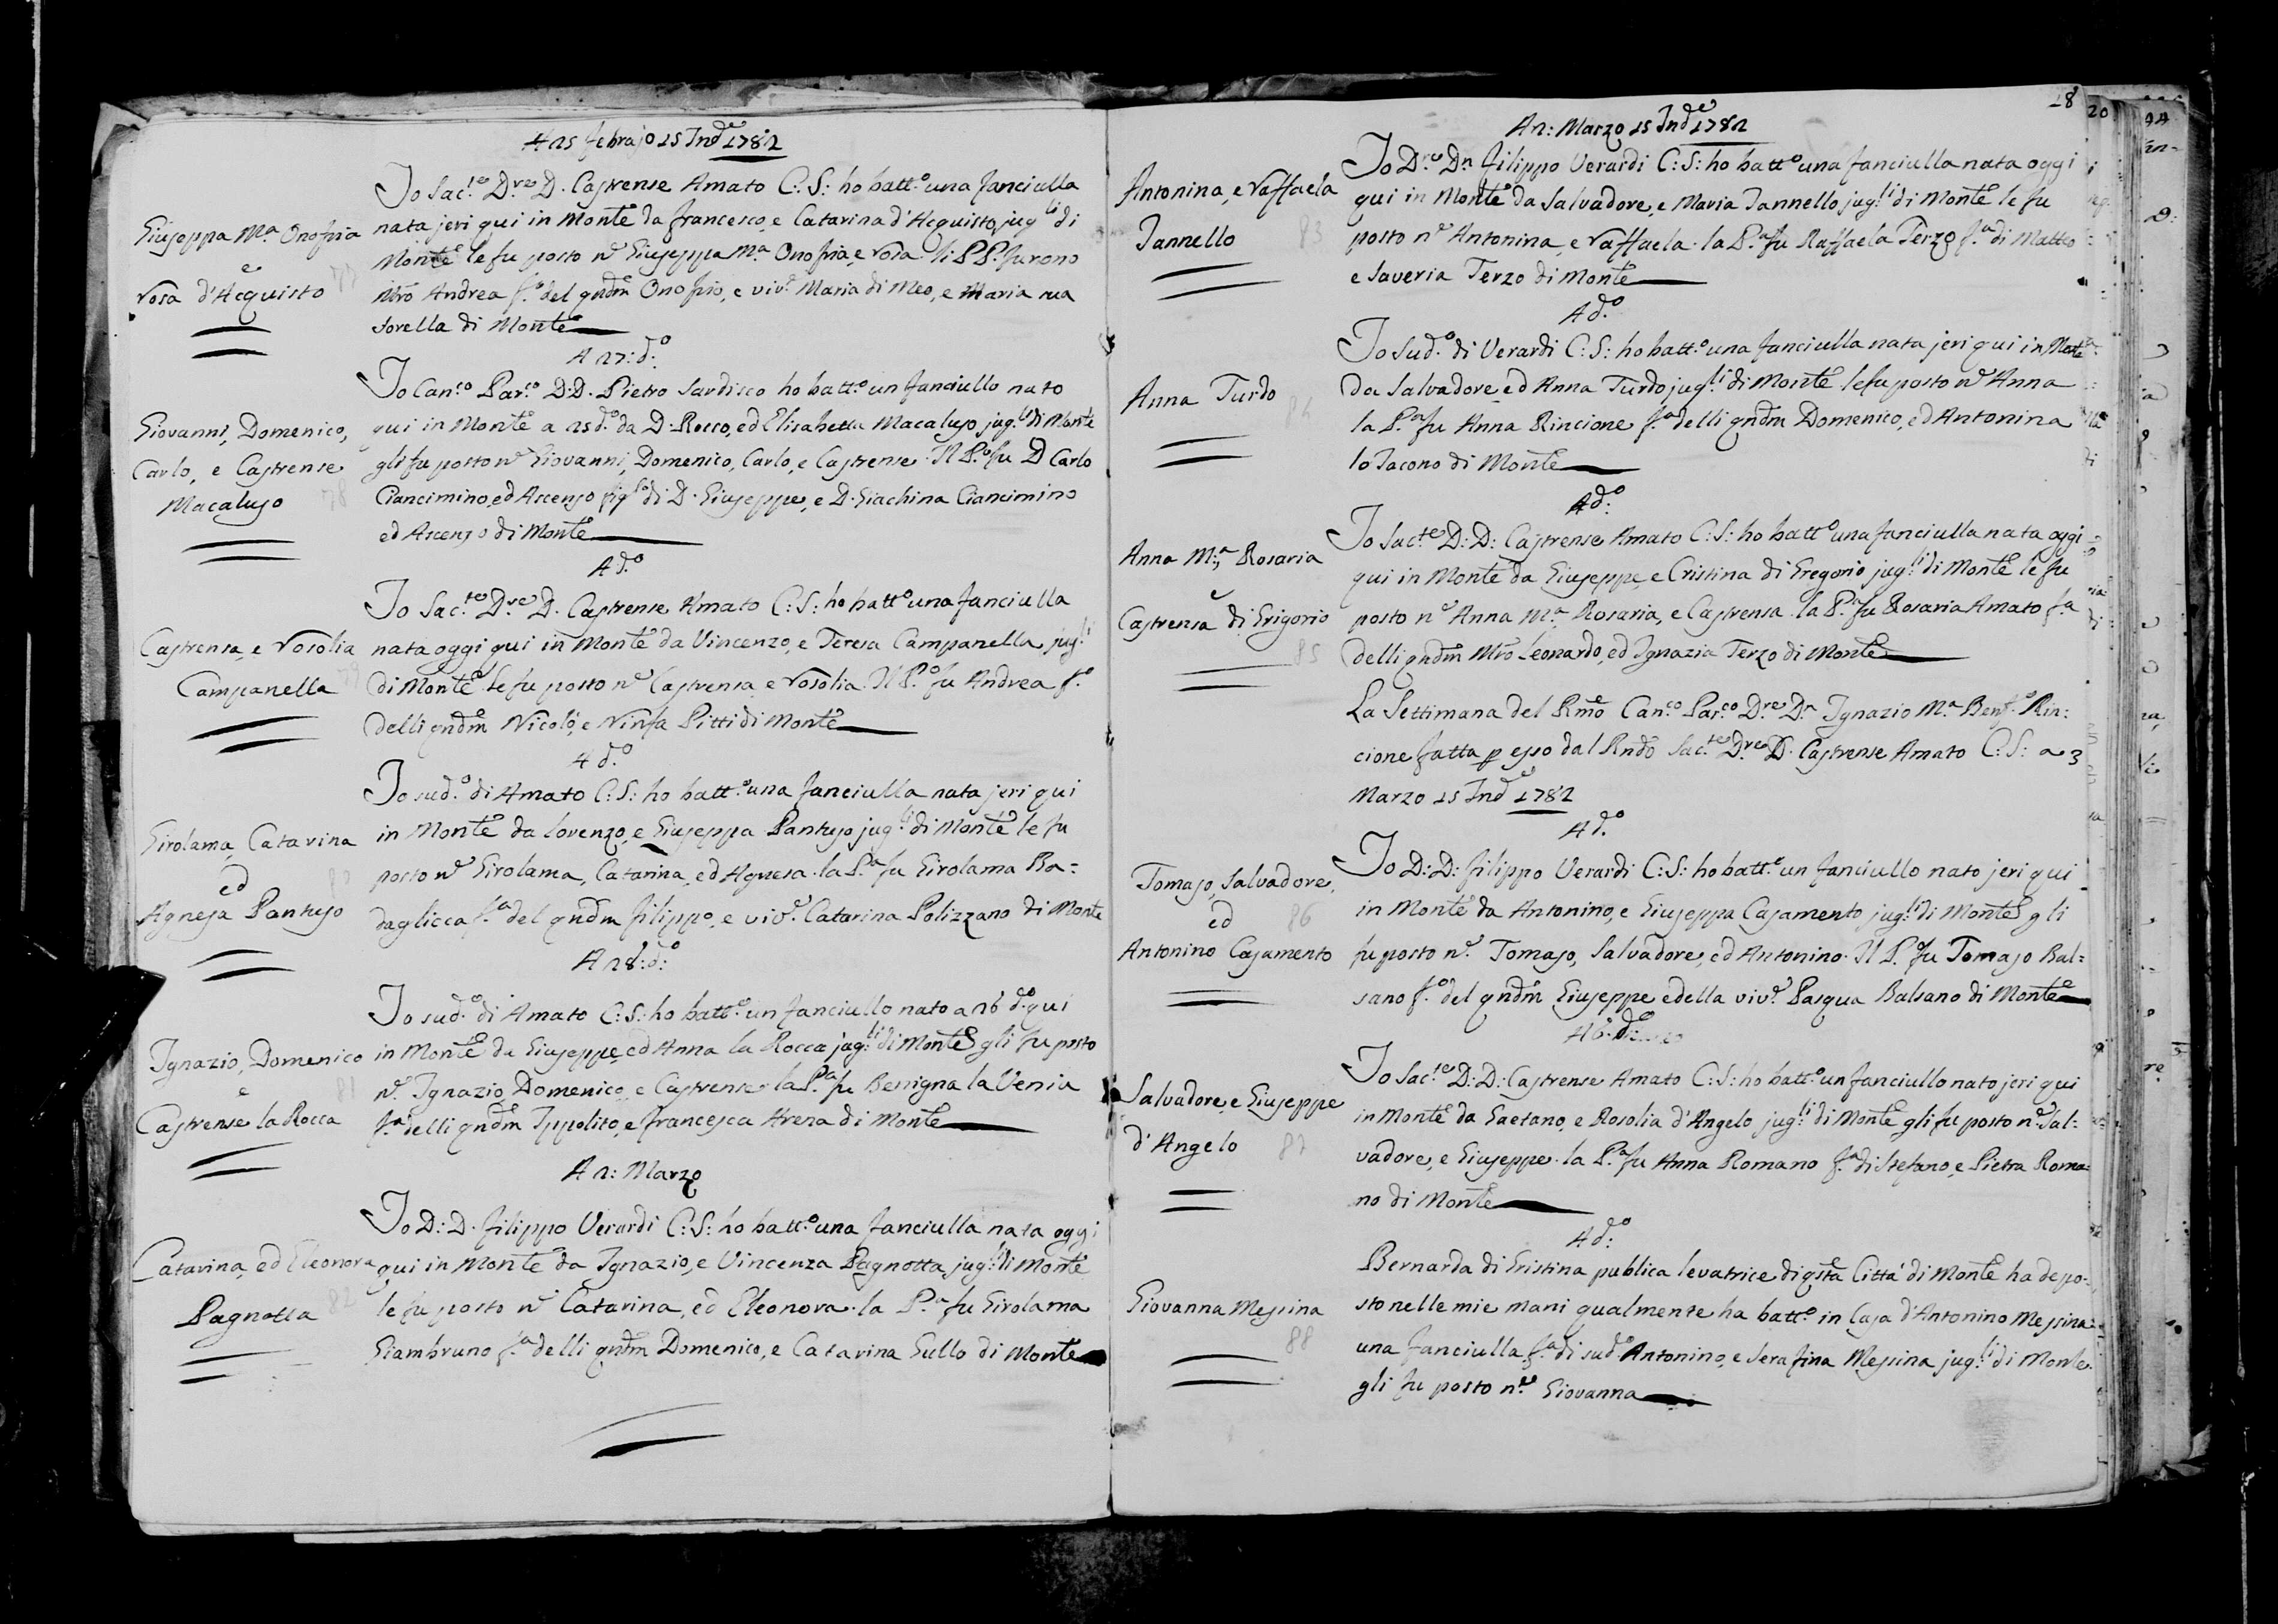 A 25 febrajo 15 Ind.e 1782
Giuseppa M.a Onofria
e
rosa d'Acquisto
Io Sac.te D.re D. Castrense Amato C: S: ho batt.o una fanciulla
nata jeri qui in Monte da francesco, e Catarina d'Acquisto, jug.li di
Monte le fu posto n.e Giuseppa M.a Onofria, e rosa li PP. furono
Mro Andrea f.o del qndm Onofrio, e viv.e Maria di Meo, e Maria sua
sorella di Monte
A 27: d.o
Giovanni, Domenico,
Carlo, e Castrense
Macaluso
78
Io Can.co Par.co D. D. Pietro Sardisco ho batt.o un fanciullo nato
qui in Monte a 25 d.o da D. Rocco, ed Elisabetta Macaluso jug.li di Monte
gli fu posto n.e Giovanni, Domenico, Carlo, e Castrense. Il P.o fu D Carlo
Ciancimino, ed Ascenso fig.lo di D. Giuseppe, e D. Giachina Ciancimino
ed Ascenso di Monte
A d.o
Castrensa, e rosolia
Campanella
Io Sac.te D.re D. Castrense Amato C: S: ho batt.o una fanciulla
nata oggi qui in Monte da Vincenzo, e Teresa Campanella jug.li
di Monte le fu posto n.e Castrensa e rosolia. Il P.o fu Andrea f.o
delli qndm Nicolò, e Ninfa Pitti di Monte
A d.o
Girolama, Catarina
ed
Agnesa Pantuso
Io sud.o di Amato C: S: ho batt.o una fanciulla nata jeri qui
in Monte da lorenzo, e Giuseppa Pantuso jug.li di Monte le fu
posto n.e Girolama, Catarina, ed Agnesa. la P.a fu Girolama Ba=
daglicca f.a del qndm filippo, e viv.e Catarina Polizzano di Monte
A 28: d:o
Ignazio, Domenico
e
Castrense la Rocca
81
Io sud.o di Amato C: S: ho batt.o un fanciullo nato a 26 d.o qui
in Monte da Giuseppe, ed Anna la Rocca jug.li di Monte gli fu posto
n.e Ignazio, Domenico, e Castrense. la P.a fu Benigna la Venia
f.a delli qndm Ippolito, e francesca Arena di Monte
A 2: Marzo
Catarina, ed Eleonora
Pagnotta
82
Io D: D. filippo Verardi C: S: ho batt.o una fanciulla nata oggi
qui in Monte da Ignazio, e Vincenza Pagnotta jug.li di Monte
le fu posto n.e Catarina, ed Eleonora. la P.a fu Girolama
Giambruno f.a delli qndm Domenico, e Catarina Gullo di Monte
18
A 2: Marzo 15 Ind.e 1782
Antonina, e raffaela
Iannello
83
Io D.re Dn filippo Verardi C: S: ho batt.o una fanciulla nata oggi
qui in Monte da Salvadore, e Maria Iannello jug.li di Monte le fu
posto n.e Antonina, e raffaela. la P.a fu Raffaela Terzo f.a di Matteo
e Saveria Terzo di Monte
A d.o
Anna Turdo
Io Sud.o di Verardi C: S: ho batt.o una fanciulla nata jeri qui in Monte
da Salvadore, ed Anna Turdo jug.li di Monte le fu posto n.e Anna
la P.a fu Anna Rincione f.a delli qndm Domenico, ed Antonina
lo Iacono di Monte
A d:o
Anna M:a, Rosaria
e
Castrensa di Grigorio
85
Io Sac.te D: D: Castrense Amato C: S: ho batt.o una fanciulla nata oggi
qui in Monte da Giuseppe, e Cristina di Gregorio jug.li di Monte le fu
posto n.e Anna M.a, Rosaria, e Castrensa. la P.a fu Rosaria Amato f.a
delli qndm Mro Leonardo, ed Ignazia Terzo di Monte
La Settimana del Rmo Can.co Par.co D.re Dn Ignazio M.a Benf.o Rin:
cione fatta p esso dal Rndo Sac.te D.re D. Castrense Amato C: S: a 3
Marzo 15 Ind.e 1782
A d.o
Tomaso, Salvadore,
ed
Antonino Casamento
86
Io D: D: filippo Verardi C: S: ho batt.o un fanciullo nato jeri qui
in Monte da Antonino, e Giuseppa Casamento jug.li di Monte gli
fu posto n.e Tomaso, Salvadore, ed Antonino. Il P.o fu Tomaso Bal=
sano f.o del qndm Giuseppe e della viv.e Pasqua Balsano di Monte
A 6. d.o
Salvadore, e Giuseppe
d'Angelo
87
Io Sac.te D: D: Castrense Amato C: S: ho batt.o un fanciullo nato jeri qui
in Monte da Gaetano, e Rosolia d'Angelo jug.li di Monte gli fu posto n.e Sal=
vadore, e Giuseppe. la P.a fu Anna Romano f.a di Stefano, e Pietra Roma=
no di Monte
A d.o
Giovanna Messina
88
Bernarda di Cristina publica levatrice di qsta Città di Monte ha depo=
sto nelle mie mani qualmente ha batt.o in Casa d'Antonino Messina
una fanciulla f.a di sud.o Antonino, e Serafina Messina jug.li di Monte.
gli fu posto n.e Giovanna